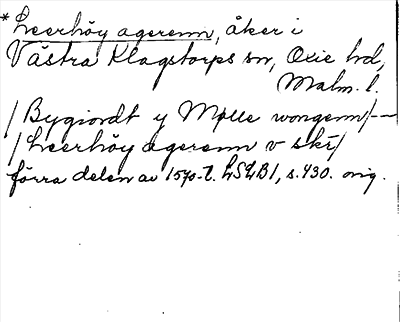 *Leerhöy agerenn, åker i
Västra Klagstorps sn, Oxie hd,
Malm. l.
/Bygiordt y Mølle wongenn/--
/Leerhöy agerenn v skr/
förra delen av 1570-t. LSLB1, s. 430. orig.